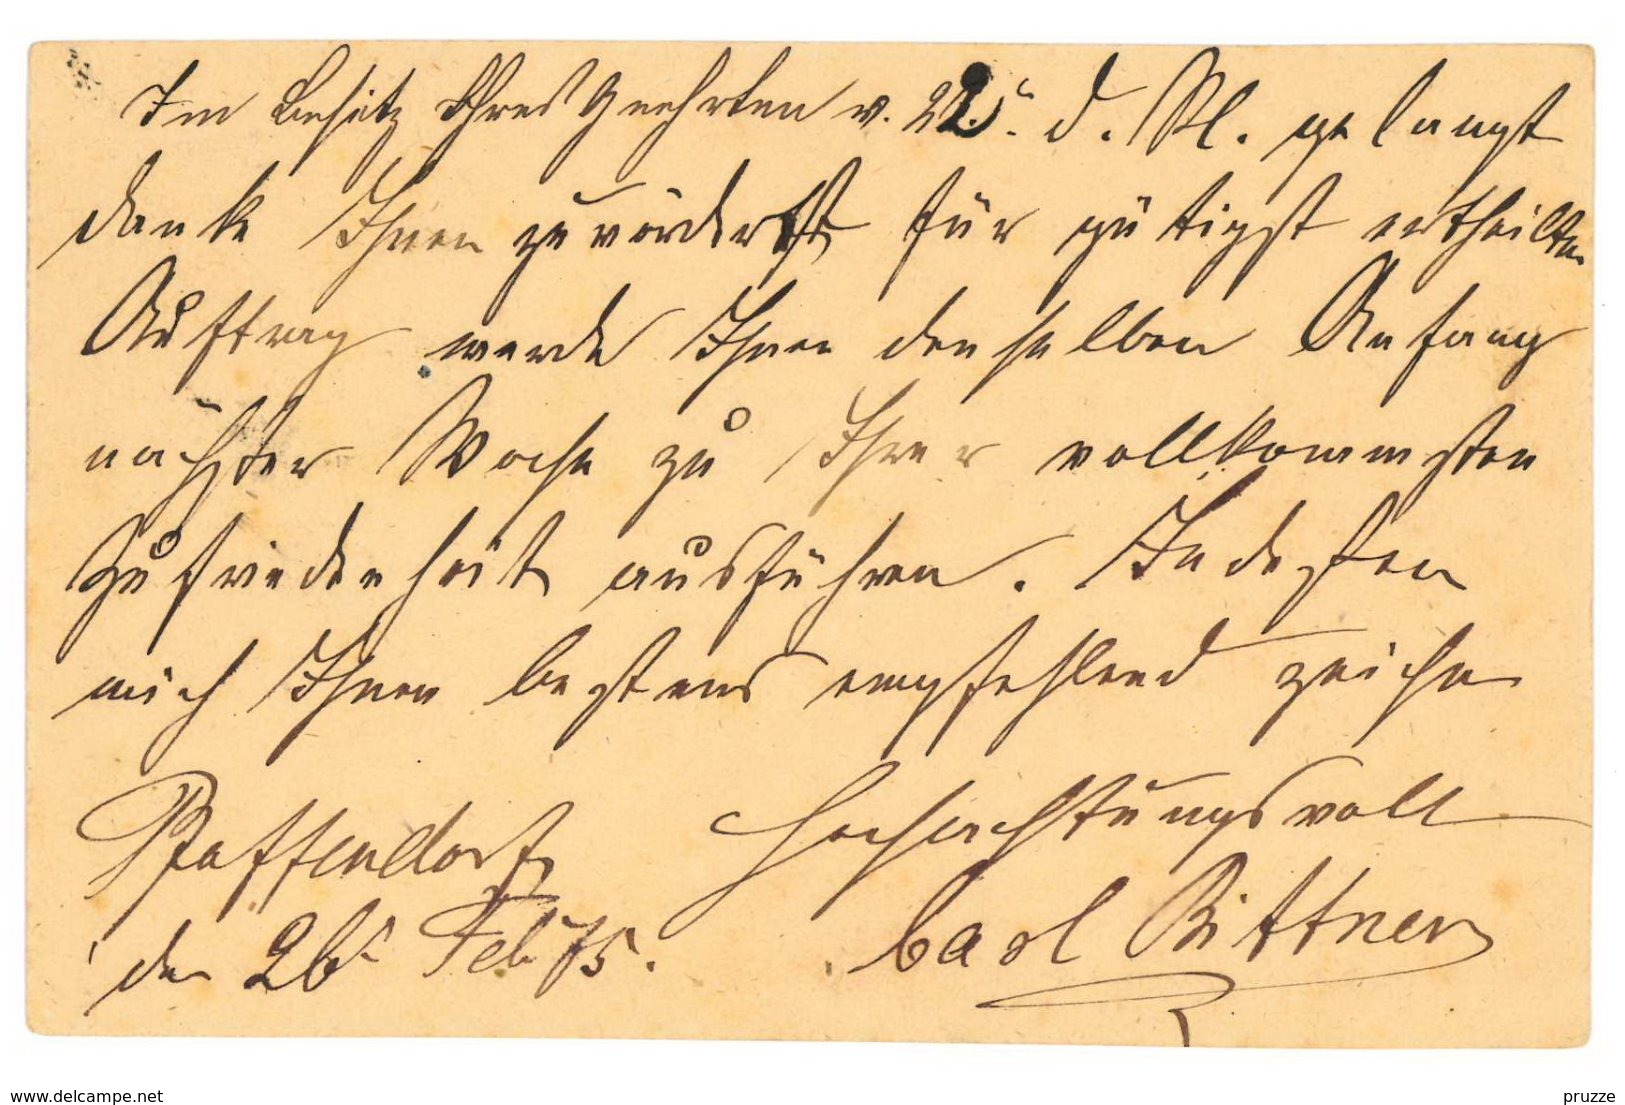 Im Besitz Ihres Geehrten v. 22. d. M. gelangt
danke Ihnen zuvörderst für gütigst ertheilten
Auftrag werde Ihnen denselben Anfang
nächster Woche zu Ihrer vollkommensten
Zufriedenheit ausführen. Indessen
mich Ihnen bestens empfehlend zeichne
Hochachtungsvoll
Pfaffendorf
den 26t Feb 75.
Carl Bittner
www.delcampe.net
pruzze